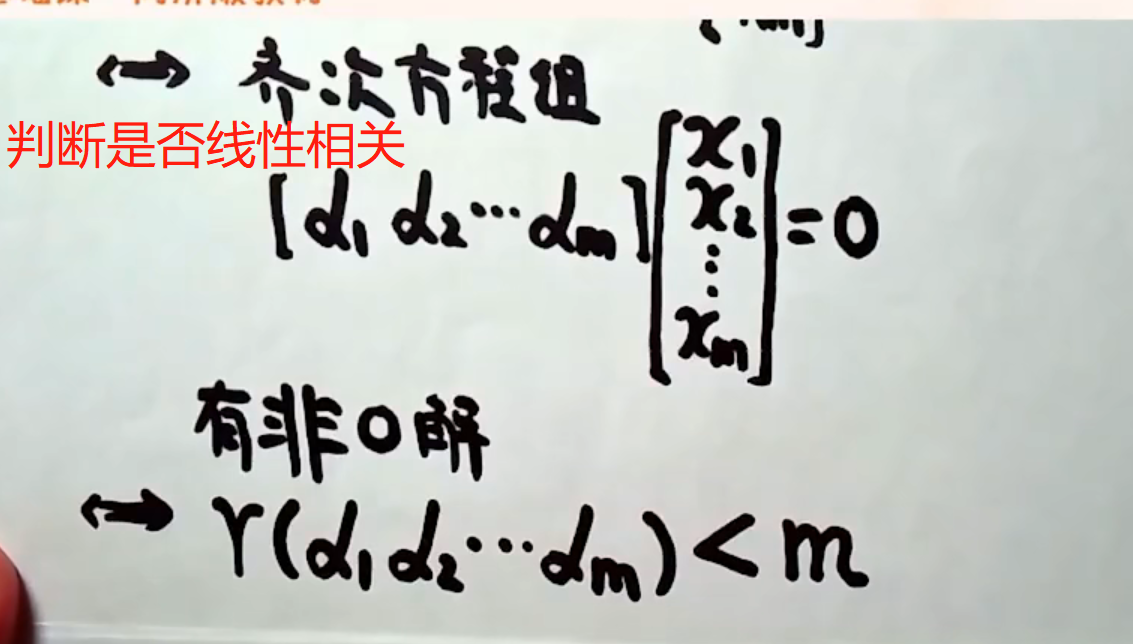 ⟷ 齐次方程组
判断是否线性相关
[α₁ α₂ ⋯ αₘ] [x₁ x₂ ⋮ xₘ] = 0
有非0解
⟷ r(α₁ α₂ ⋯ αₘ) < m